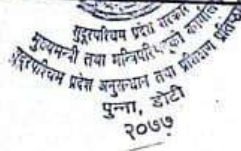 सुदूरपश्चिम प्रदेश सरकार
मुख्यमन्त्री तथा मन्त्रिपरिषद्को कार्यालय
सुदूरपश्चिम प्रदेश अनुसन्धान तथा प्रशिक्षण प्रतिष्ठान
पुन्ना, डोटी
२०७७